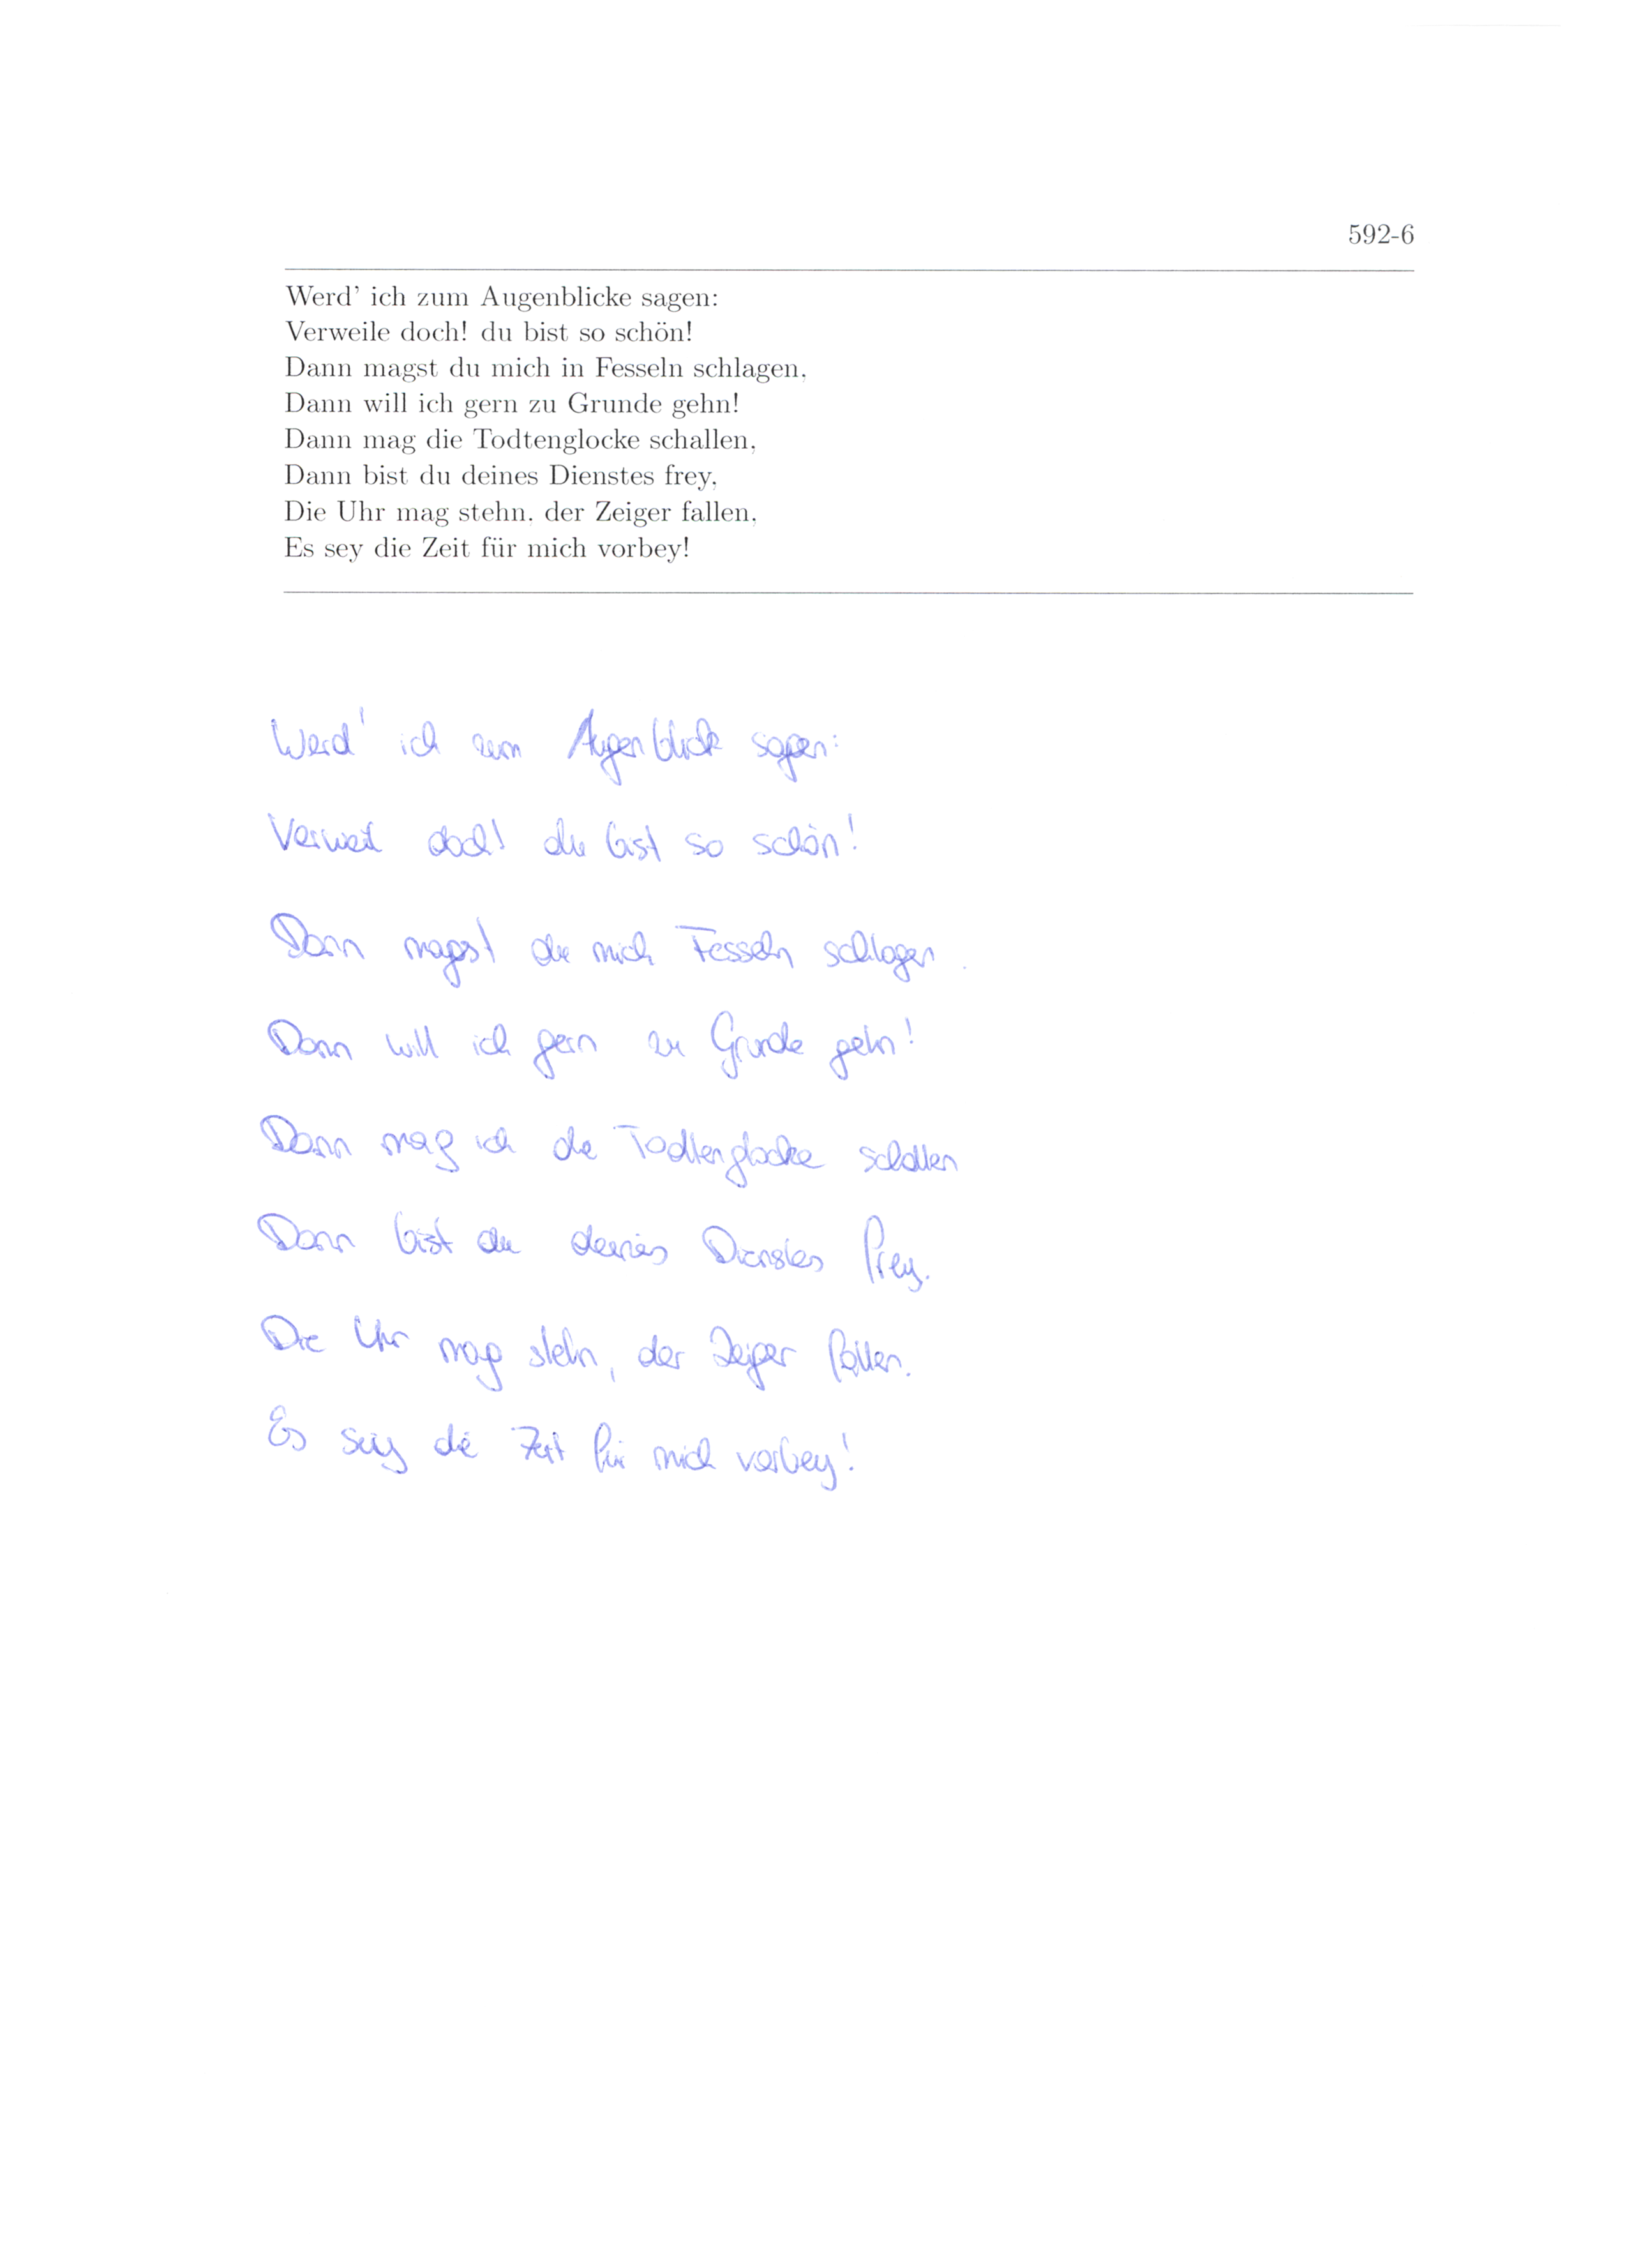 592-6
Werd' ich zum Augenblicke sagen:
Verweile doch! du bist so schön!
Dann magst du mich in Fesseln schlagen,
Dann will ich gern zu Grunde gehn!
Dann mag die Todtenglocke schallen,
Dann bist du deines Dienstes frey,
Die Uhr mag stehn, der Zeiger fallen,
Es sey die Zeit für mich vorbey!
Werd' ich zum Augenblick sagen:
Verweil doch! du bist so schön!
Dann magst du mich Fesseln schlagen.
Dann will ich gern zu Grunde gehn!
Dann mag ich die Todtenglocke schallen
Dann bist du deines Dienstes frey.
Die Uhr mag stehn, der Zeiger fallen.
Es sey die Zeit für mich vorbey!